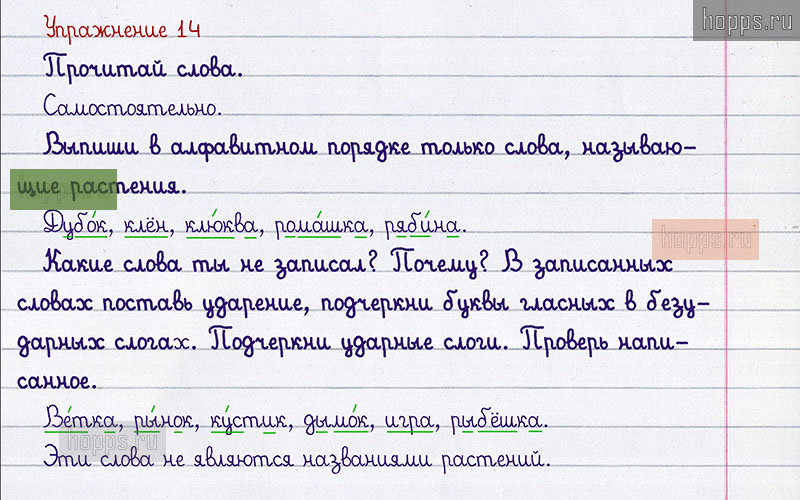 Упражнение 14
hopps.ru
Прочитай слова.
Самостоятельно.
Выпиши в алфавитном порядке только слова, называю-
щие растения.
Дубо́к, клён, клю́ква, рома́шка, ряби́на.
hopps.ru
Какие слова ты не записал? Почему? В записанных
словах поставь ударение, подчеркни буквы гласных в безу-
дарных слогах. Подчеркни ударные слоги. Проверь напи-
санное.
Ве́тка, ры́нок, ку́стик, дымо́к, игра, рыбёшка.
hopps.ru
Эти слова не являются названиями растений.